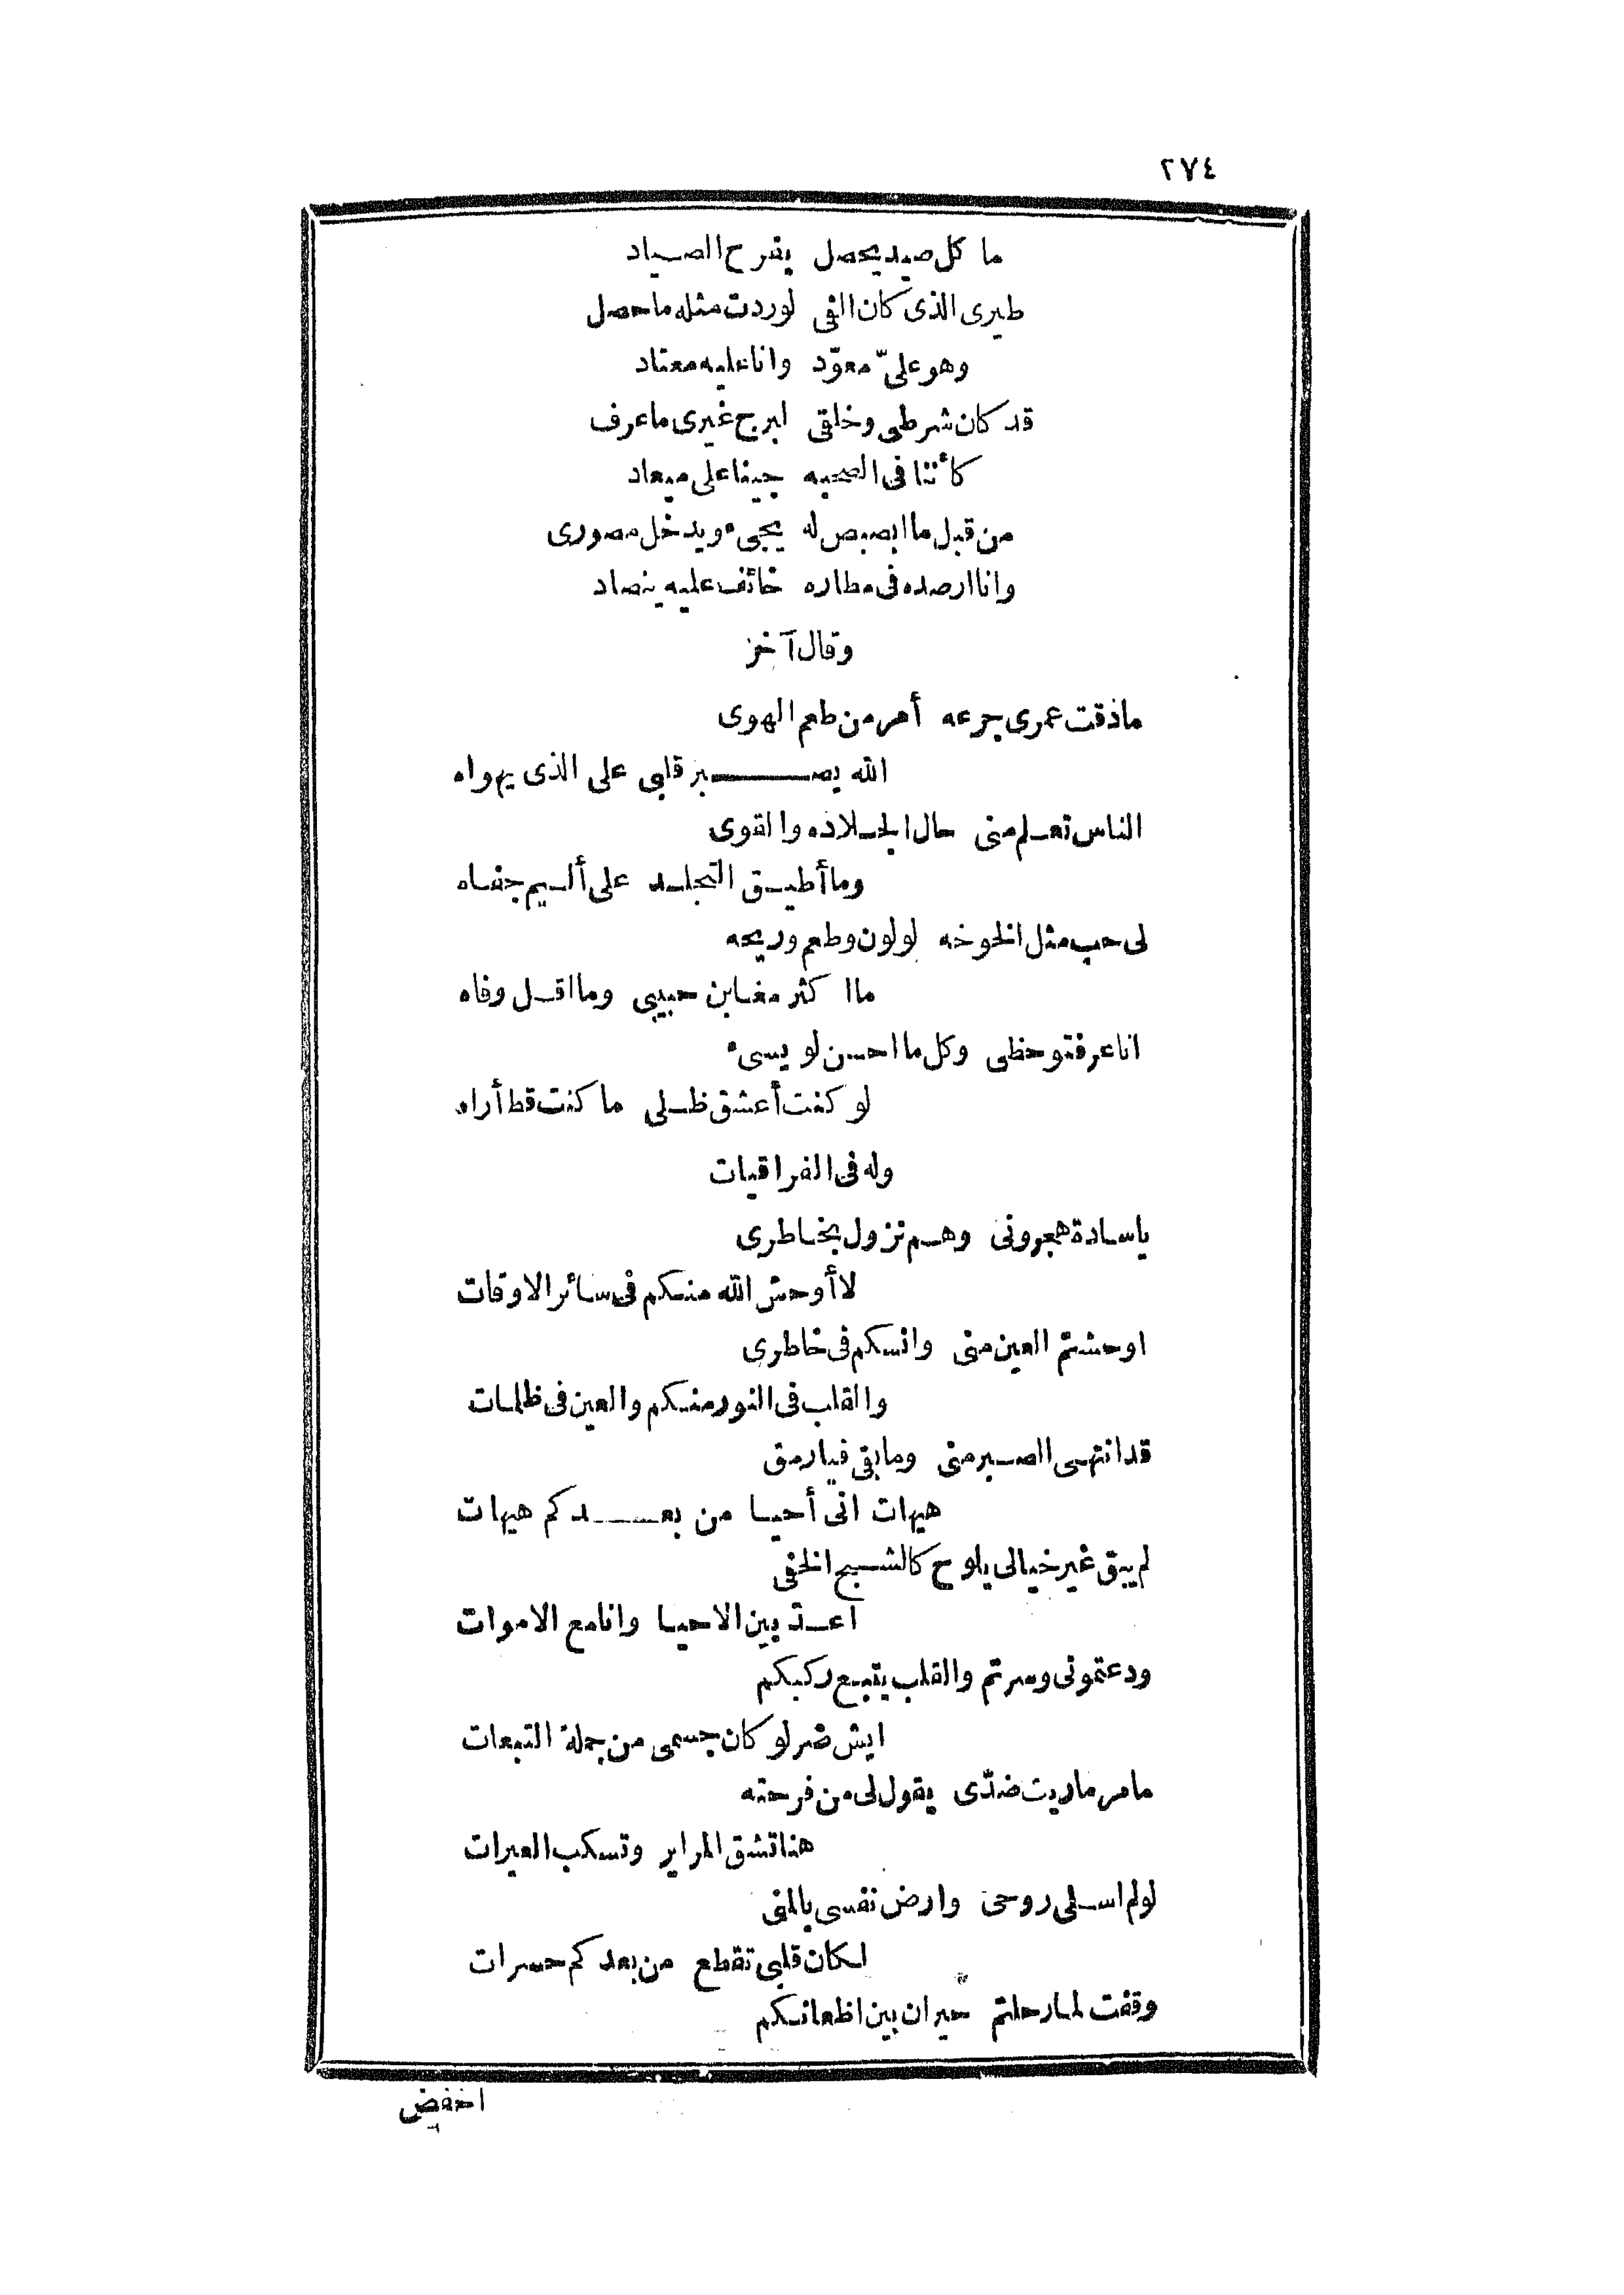 ٢٧٤
ما كل صيد يحصل يفرح الصياد
طيرى الذى كان الفى لوردت مثله ما حصل
وهو علىّ معوّد وانا عليه معتاد
قد كان شرطى وخلقى ابرج غيرى ما عرف
كأننا فى الصحبه جينا على ميعاد
من قبل ما ابصبص له يجىء ويدخل مصورى
وانا ارصده فى مطاره خائف عليه ينصاد
وقال آخر
ماذقت عمرى جرعه أمر من طعم الهوى
الله يصبر قلبى على الذى يهواه
الناس تعلم منى حال الجلاده والقوى
وما أطيق التجلد على أليم جفاه
لى حب مثل الخوخه لو لون وطعم وريحه
ما اكثر مغابن حبيبى وما اقل وفاه
انا عرفتو حظى وكل ما احسن لو يسىء
لو كنت أعشق ظلى ما كنت قط أراه
وله فى الفراقيات
ياسادة هجرونى وهم نزول بخاطرى
لا أوحش الله منكم فى سائر الاوقات
اوحشتم العين منى وانسكم فى خاطرى
والقلب فى النور منكم والعين فى ظلمات
قد انتهى الصبر منى وما بقى فيا رمق
هيهات انى أحيا من بعدكم هيهات
لم يبق غير خيالى يلوح كالشبح الخفى
اعدّ بين الاحيا وانا مع الاموات
ودعتمونى وسرتم والقلب يتبع ركبكم
ايش ضر لو كان جسمى من جملة التبعات
مامر ماريت ضدّى يقول لى من فرحته
هنا تشق المراير وتسكب العبرات
لو لم اسلى روحى وارض نفسى بالمنى
لكان قلبى تقطع من بعدكم حسرات
وقفت لما رحلتم حيران بين اظعانكم
اخفيض